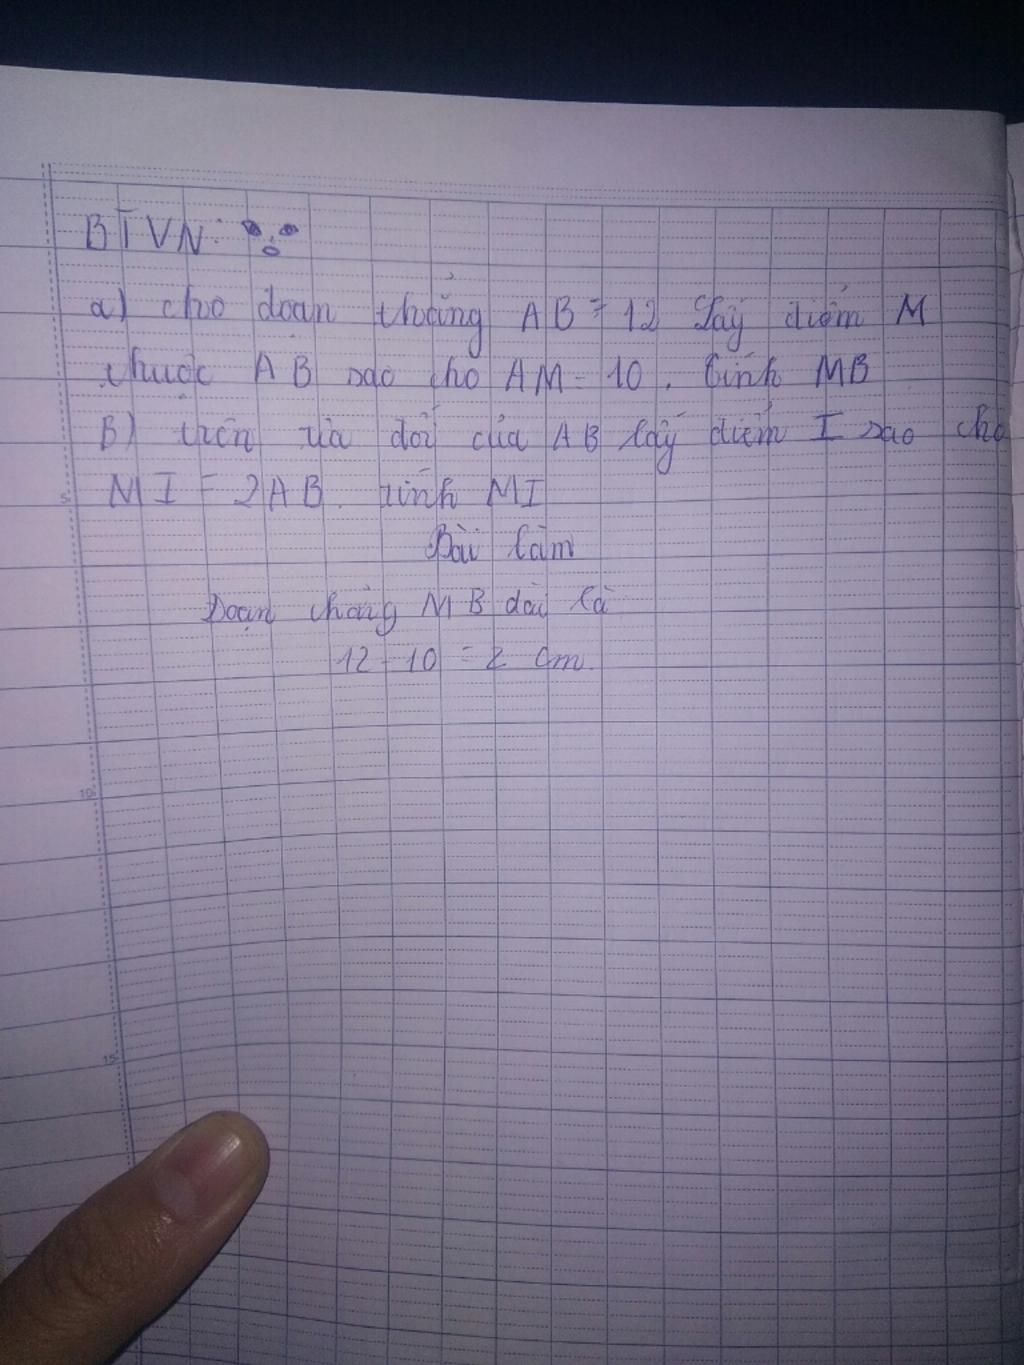 BTVN:
a) cho đoạn thẳng AB = 12 Lấy điểm M
thuộc AB sao cho AM = 10. Tính MB
B) trên tia đối của AB lấy điểm I sao cho
MI = 2AB. tính MI
Bài làm
Đoạn thẳng MB dài là
12 - 10 = 2 cm.
5
10
15